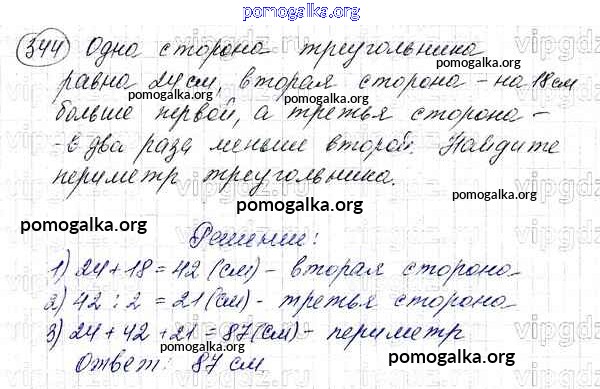 pomogalka.org
344 Одна сторона треугольника
равна 24 см, вторая сторона - на 18 см
pomogalka.org
больше первой, а третья сторона -
- в два раза меньше второй. Найдите
периметр треугольника.
pomogalka.org
pomogalka.org pomogalka.org
Решение:
1) 24 + 18 = 42 (см) - вторая сторона
pomogalka.org
2) 42 : 2 = 21 (см) - третья сторона
3) 24 + 42 + 21 = 87 (см) - периметр
Ответ: 87 см.
pomogalka.org pomogalka.org